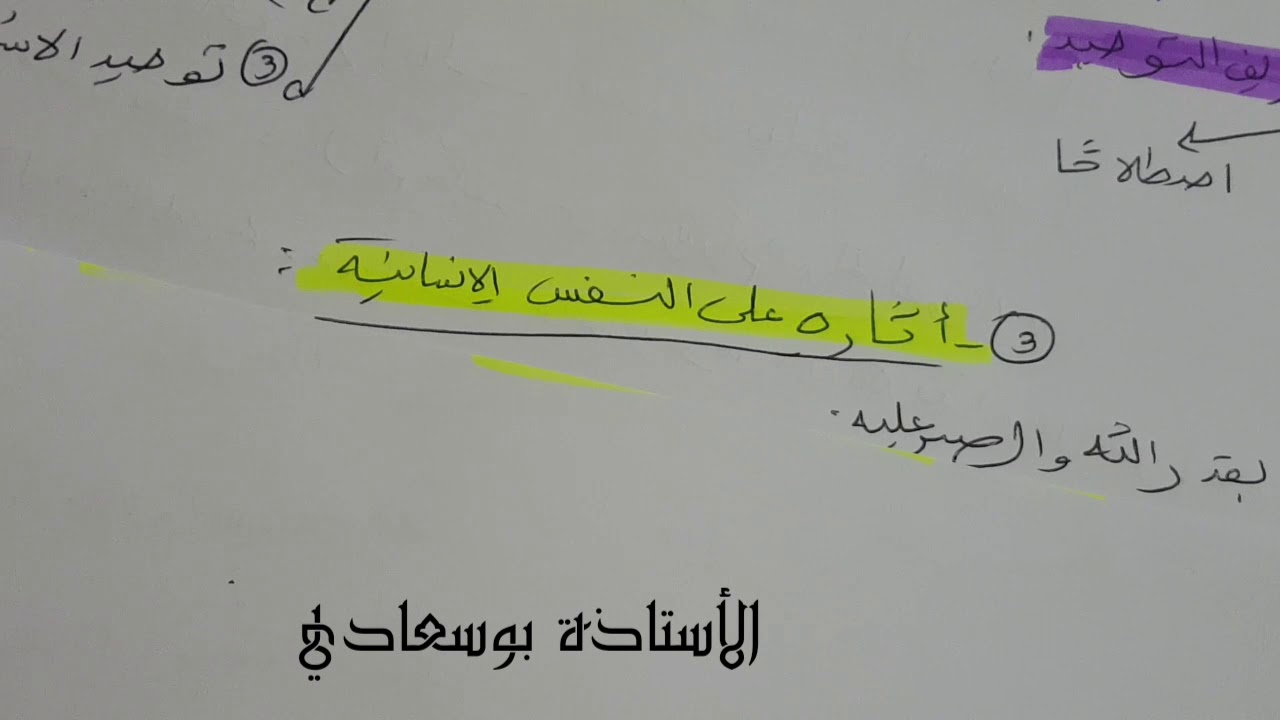 التوحيد .
③ توحيد
اصطلاحًا
③ - أثاره على النفس الإنسانية :
بقدر الله والصبر عليه .
الأستاذة بوسعادي